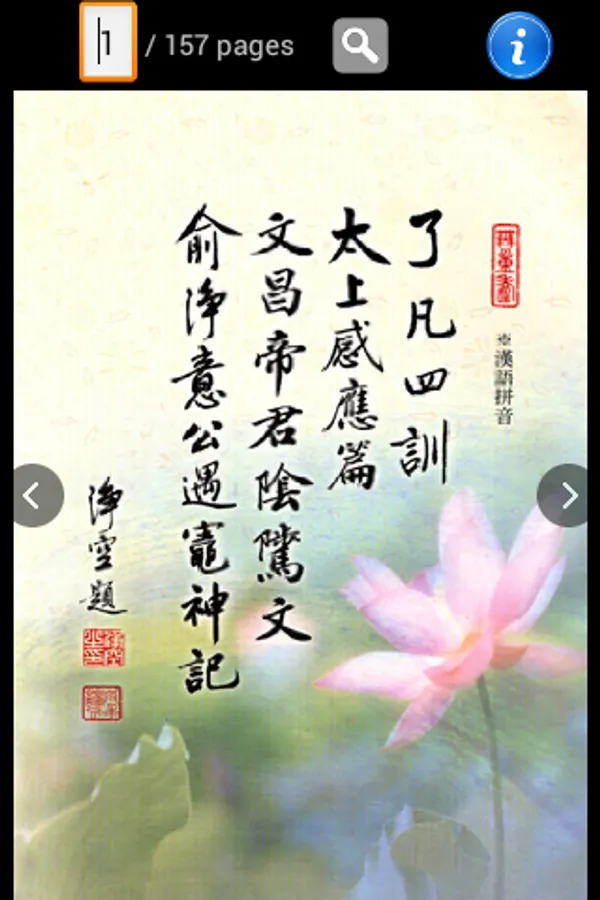 1 / 157 pages
無量壽
※漢語拼音
了凡四訓
太上感應篇
文昌帝君陰騭文
俞淨意公遇竈神記
淨空題